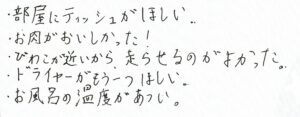 ・部屋にティッシュがほしい。
・お肉がおいしかった！
・びわこが近いから、走らせるのがよかった。
・ドライヤーがもう一つほしい。
・お風呂の温度があつい。